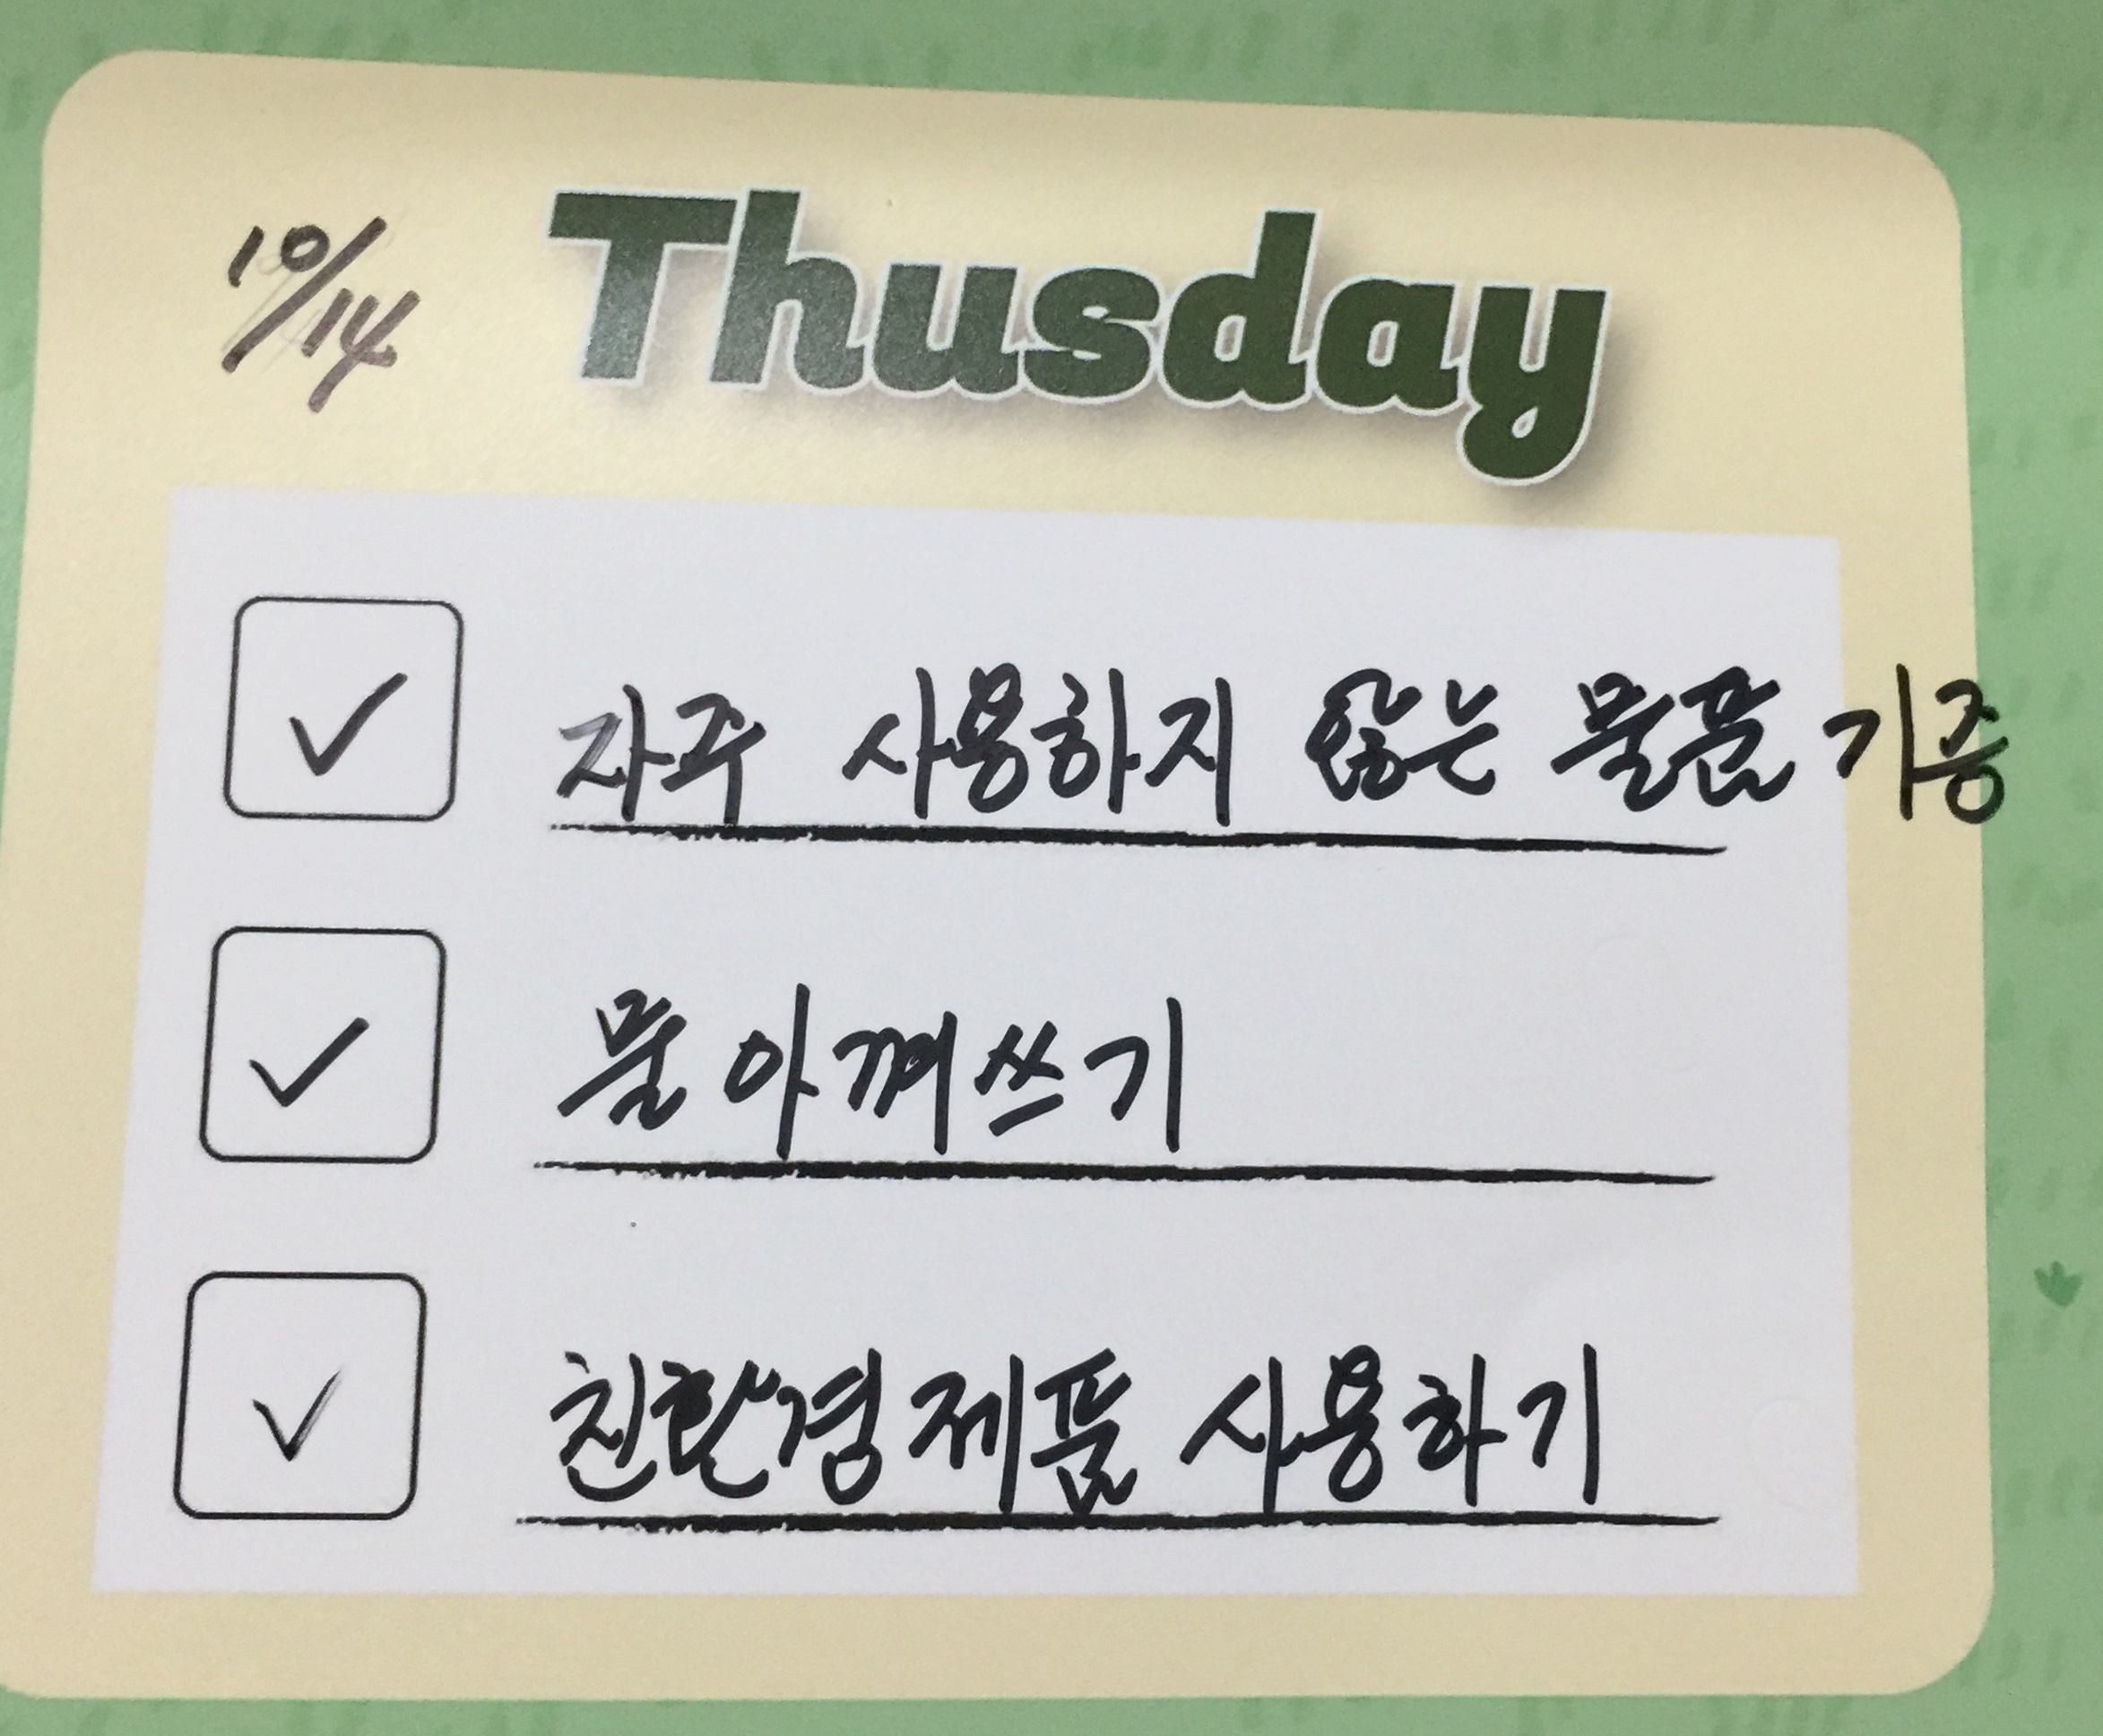 10/14 Thusday
자주 사용하지 않는 물품 기증
물 아껴쓰기
친환경 제품 사용하기